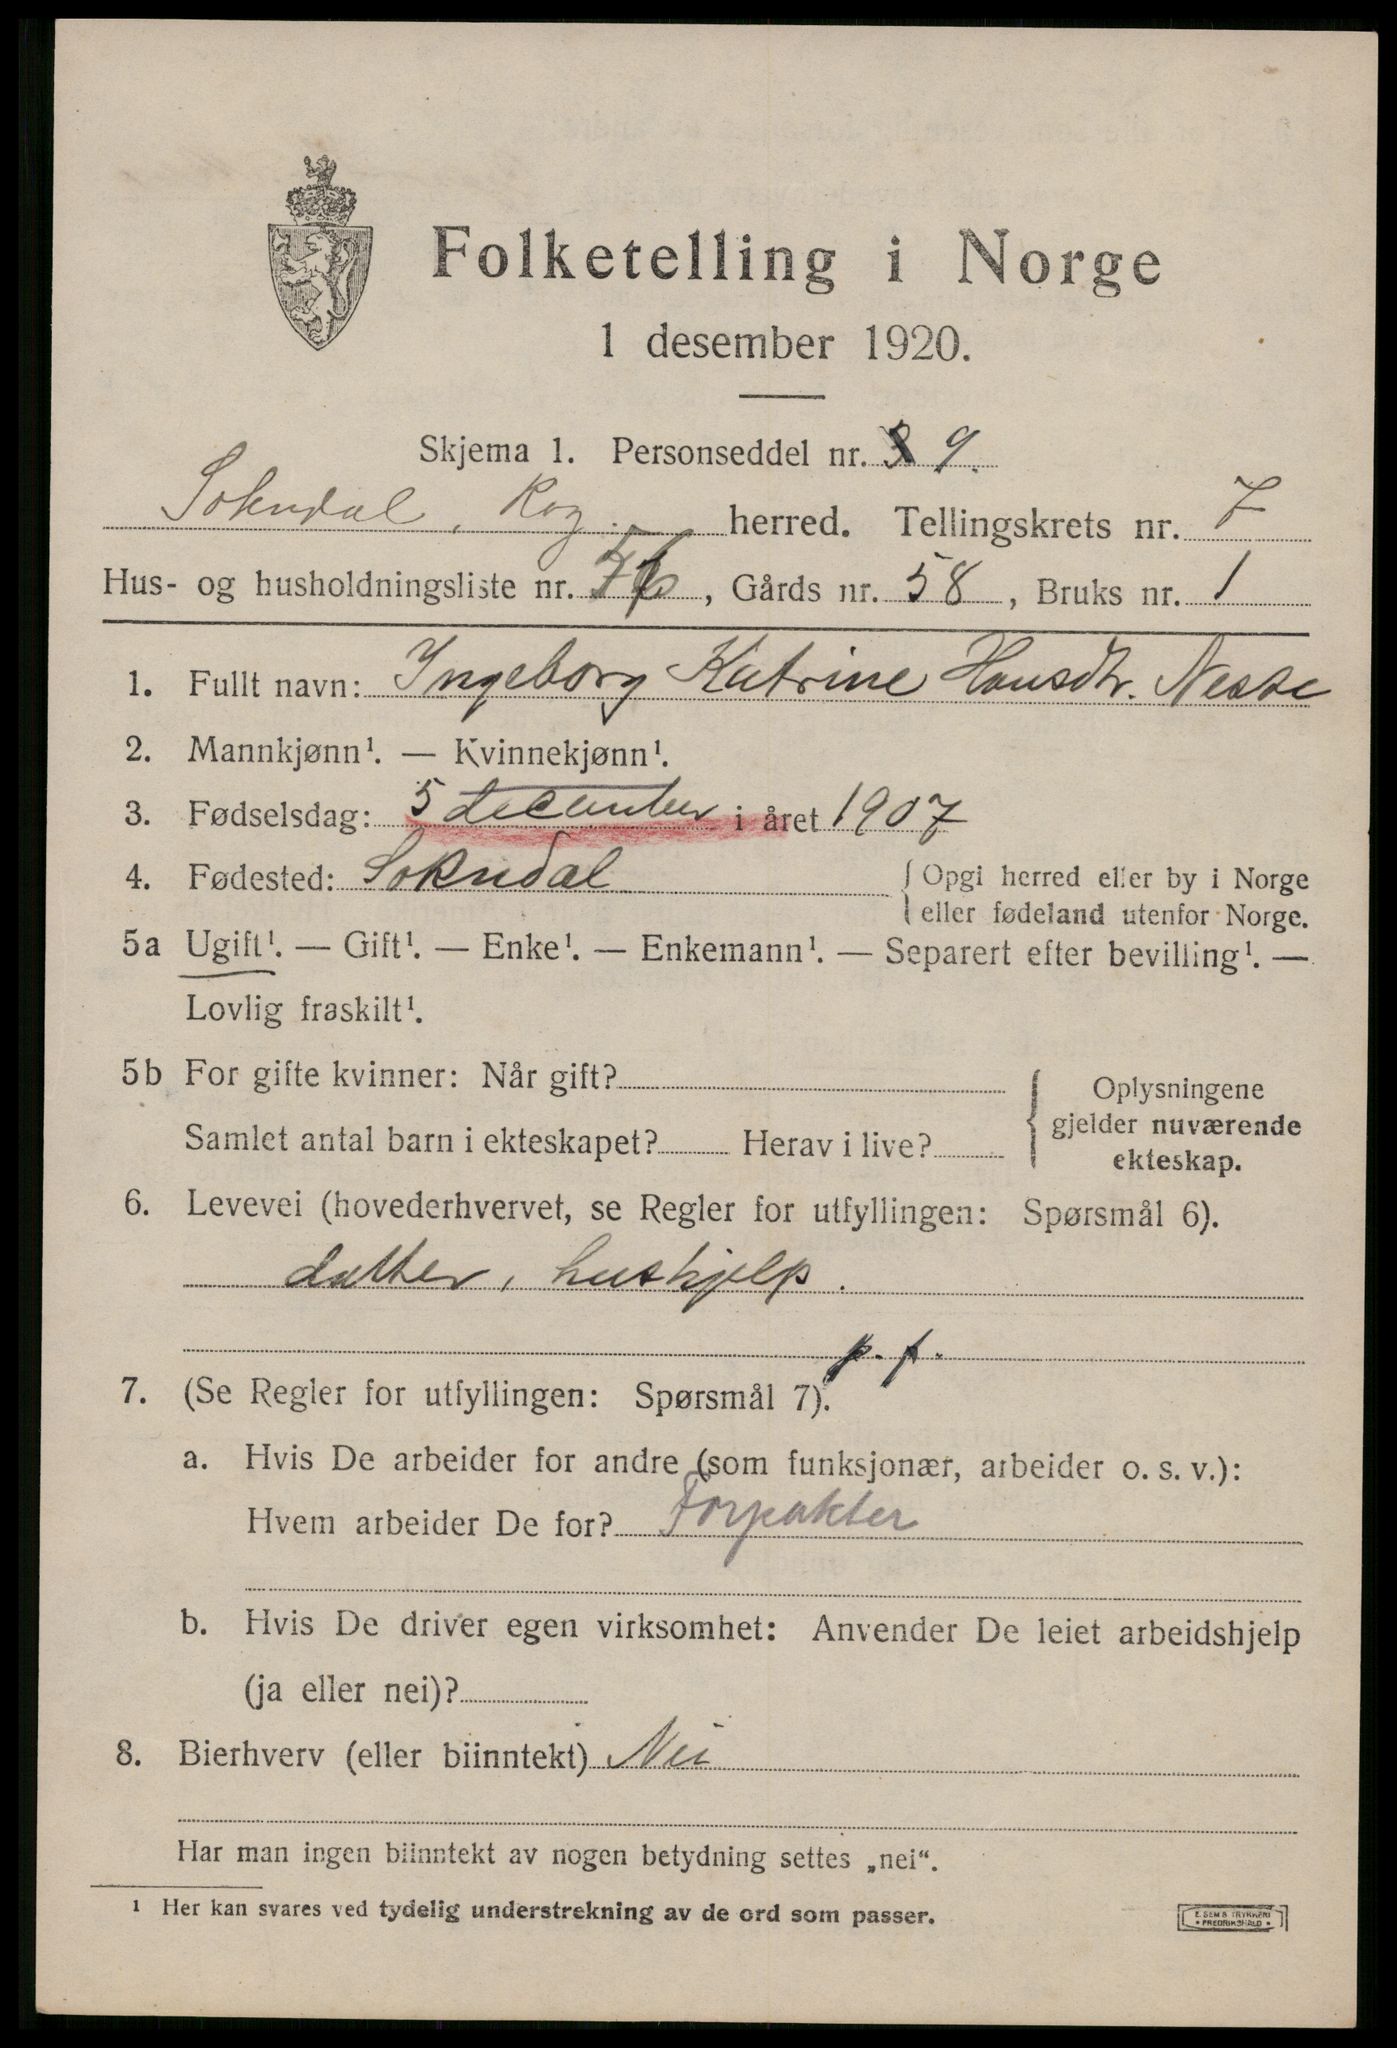 Folketelling i Norge
1 desember 1920.
Skjema 1. Personseddel nr. 9.
Sokndal, Rog. herred. Tellingskrets nr. 7
Hus- og husholdningsliste nr. , Gårds nr. 58, Bruks nr. 1
1. Fullt navn: Ingeborg Katrine Hansdtr. Nesse
2. Mannkjønn¹. — Kvinnekjønn¹.
3. Fødselsdag: 5 december i året 1907
4. Fødested: Sokndal { Opgi herred eller by i Norge
eller fødeland utenfor Norge.
5a Ugift¹. — Gift¹. — Enke¹. — Enkemann¹. — Separert efter bevilling¹. —
Lovlig fraskilt¹.
5b For gifte kvinner: Når gift?
Samlet antal barn i ekteskapet? Herav i live?
{ Oplysningene
gjelder nuværende
ekteskap.
6. Levevei (hovederhvervet, se Regler for utfyllingen: Spørsmål 6).
datter, hushjelp.
p. f.
7. (Se Regler for utfyllingen: Spørsmål 7).
a. Hvis De arbeider for andre (som funksjonær, arbeider o. s. v.):
Hvem arbeider De for? Forpakter
b. Hvis De driver egen virksomhet: Anvender De leiet arbeidshjelp
(ja eller nei)?
8. Bierhverv (eller biinntekt) Nei
Har man ingen biinntekt av nogen betydning settes „nei“.
¹ Her kan svares ved tydelig understrekning av de ord som passer.
E. SEMS TRYKKERI
• FREDRIKSHALD •